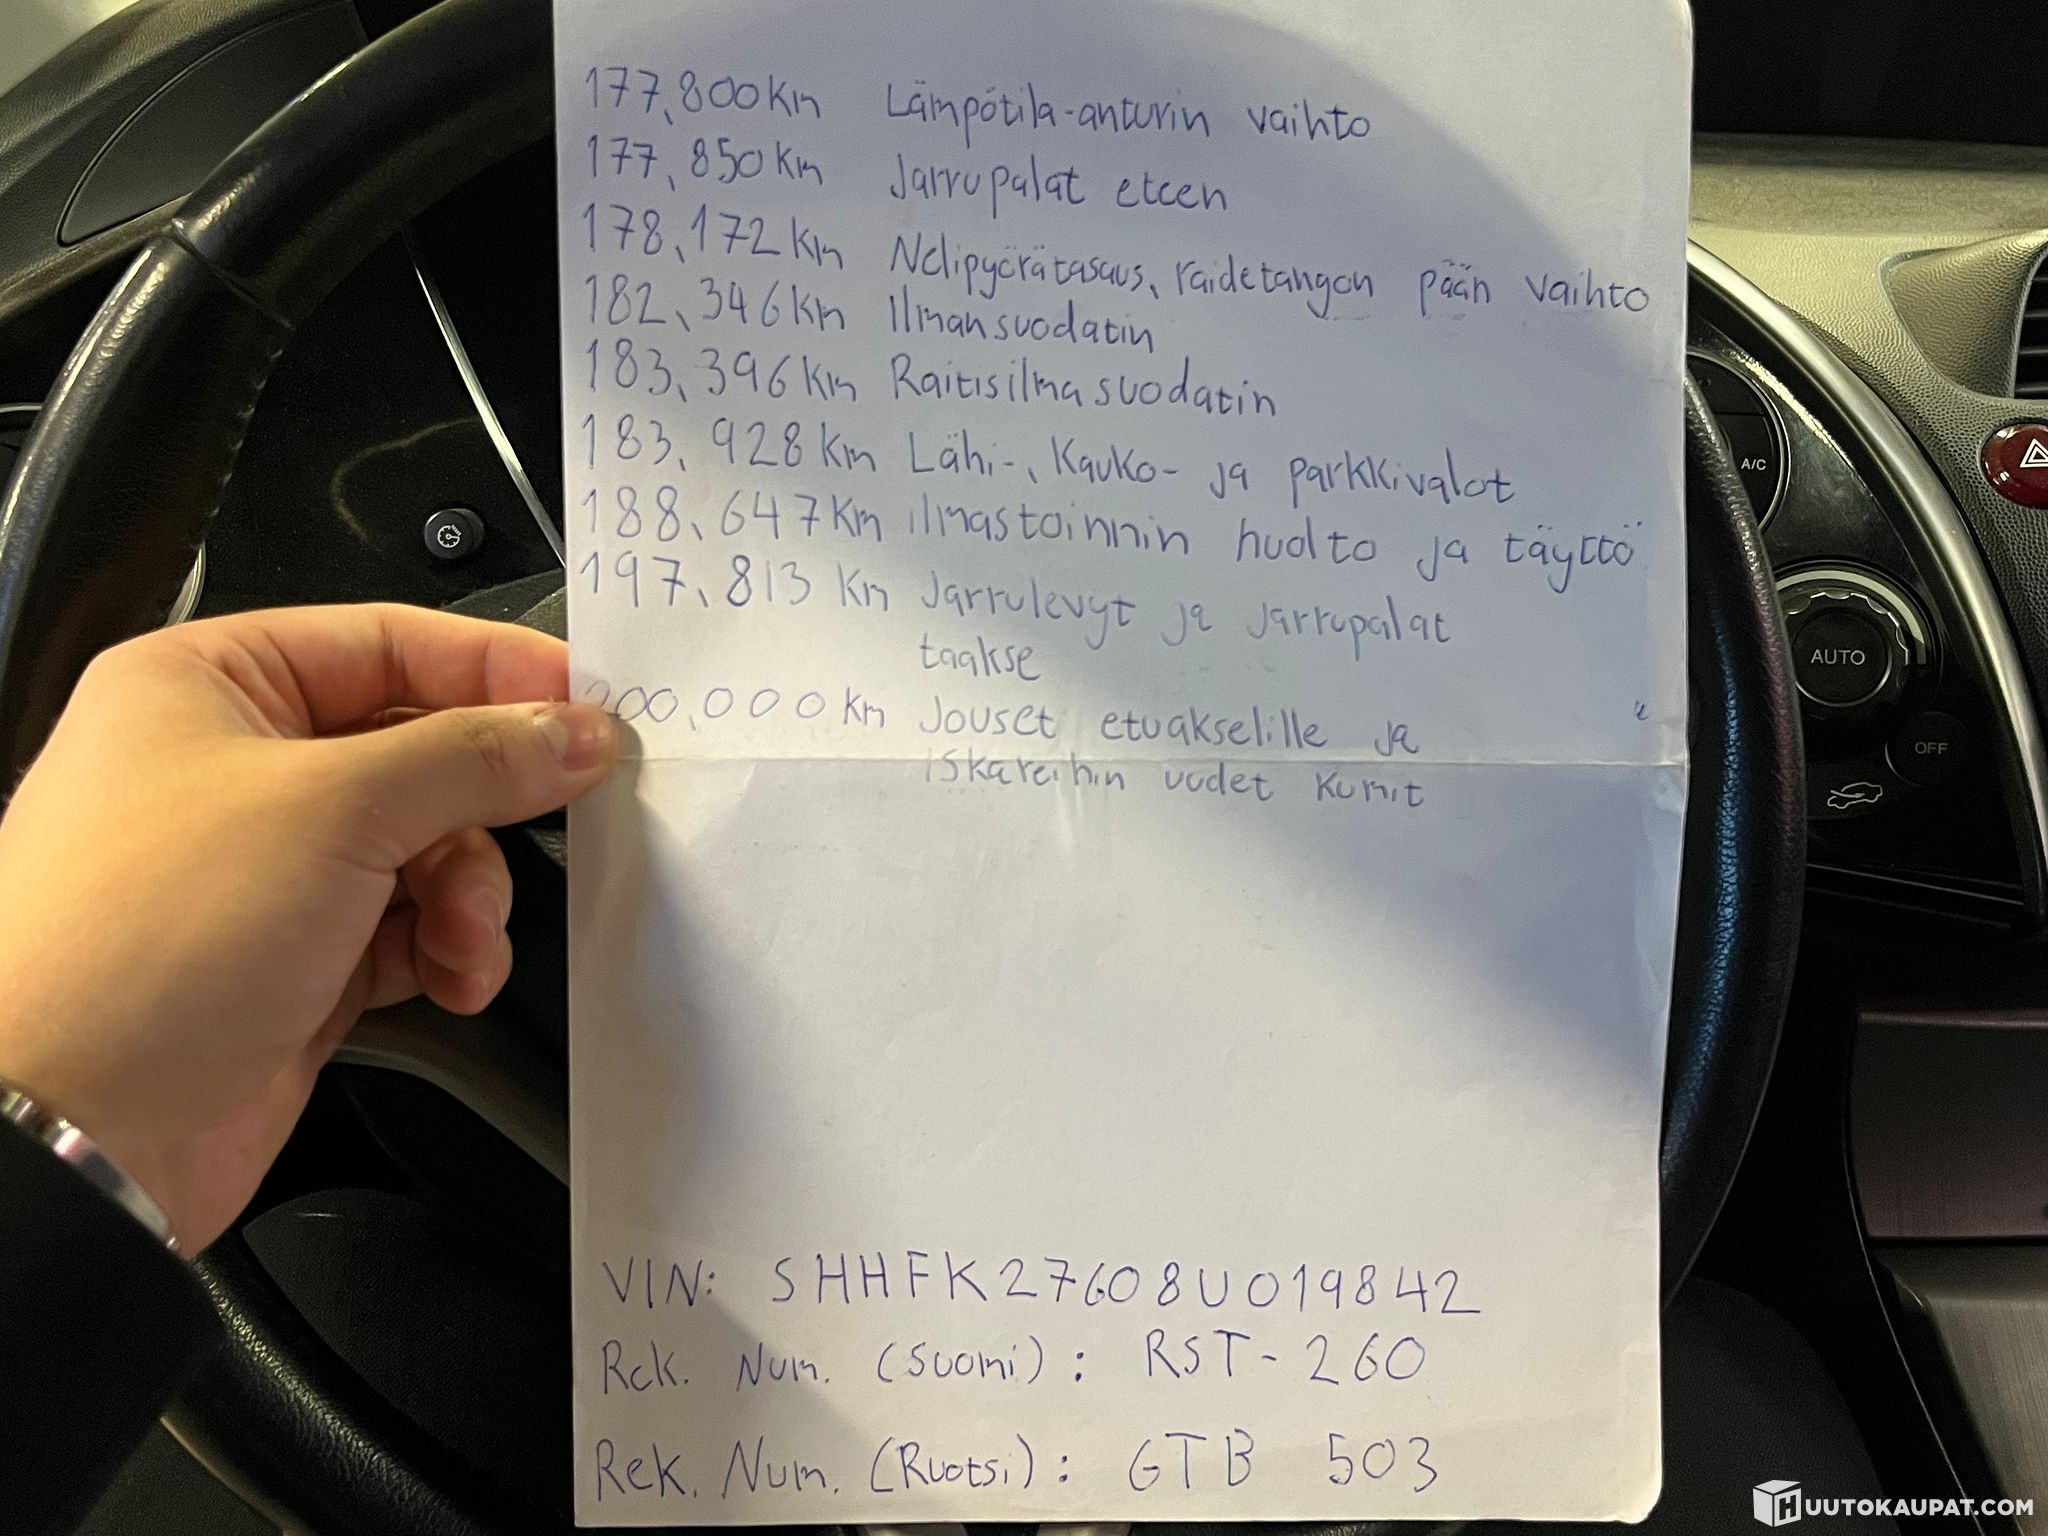 177,800km Lämpötila-anturin vaihto
177,850km Jarrupalat eteen
178,172km Nelipyörätasaus, raidetangon pään vaihto
182,346km Ilmansuodatin
183,396km Raitisilmasuodatin
183,928km Lähi-, Kauko- ja parkkivalot
188,647km ilmastoinnin huolto ja täyttö
197,813 km Jarrulevyt ja jarrupalat
taakse
200,000 km Jouset etuakselille ja
iskareihin uudet kumit
VIN: SHHFK27608U019842
Rek. Num. (Suomi): RST-260
Rek. Num. (Ruotsi): GTB 503
A/C
AUTO
OFF
HUUTOKAUPAT.COM